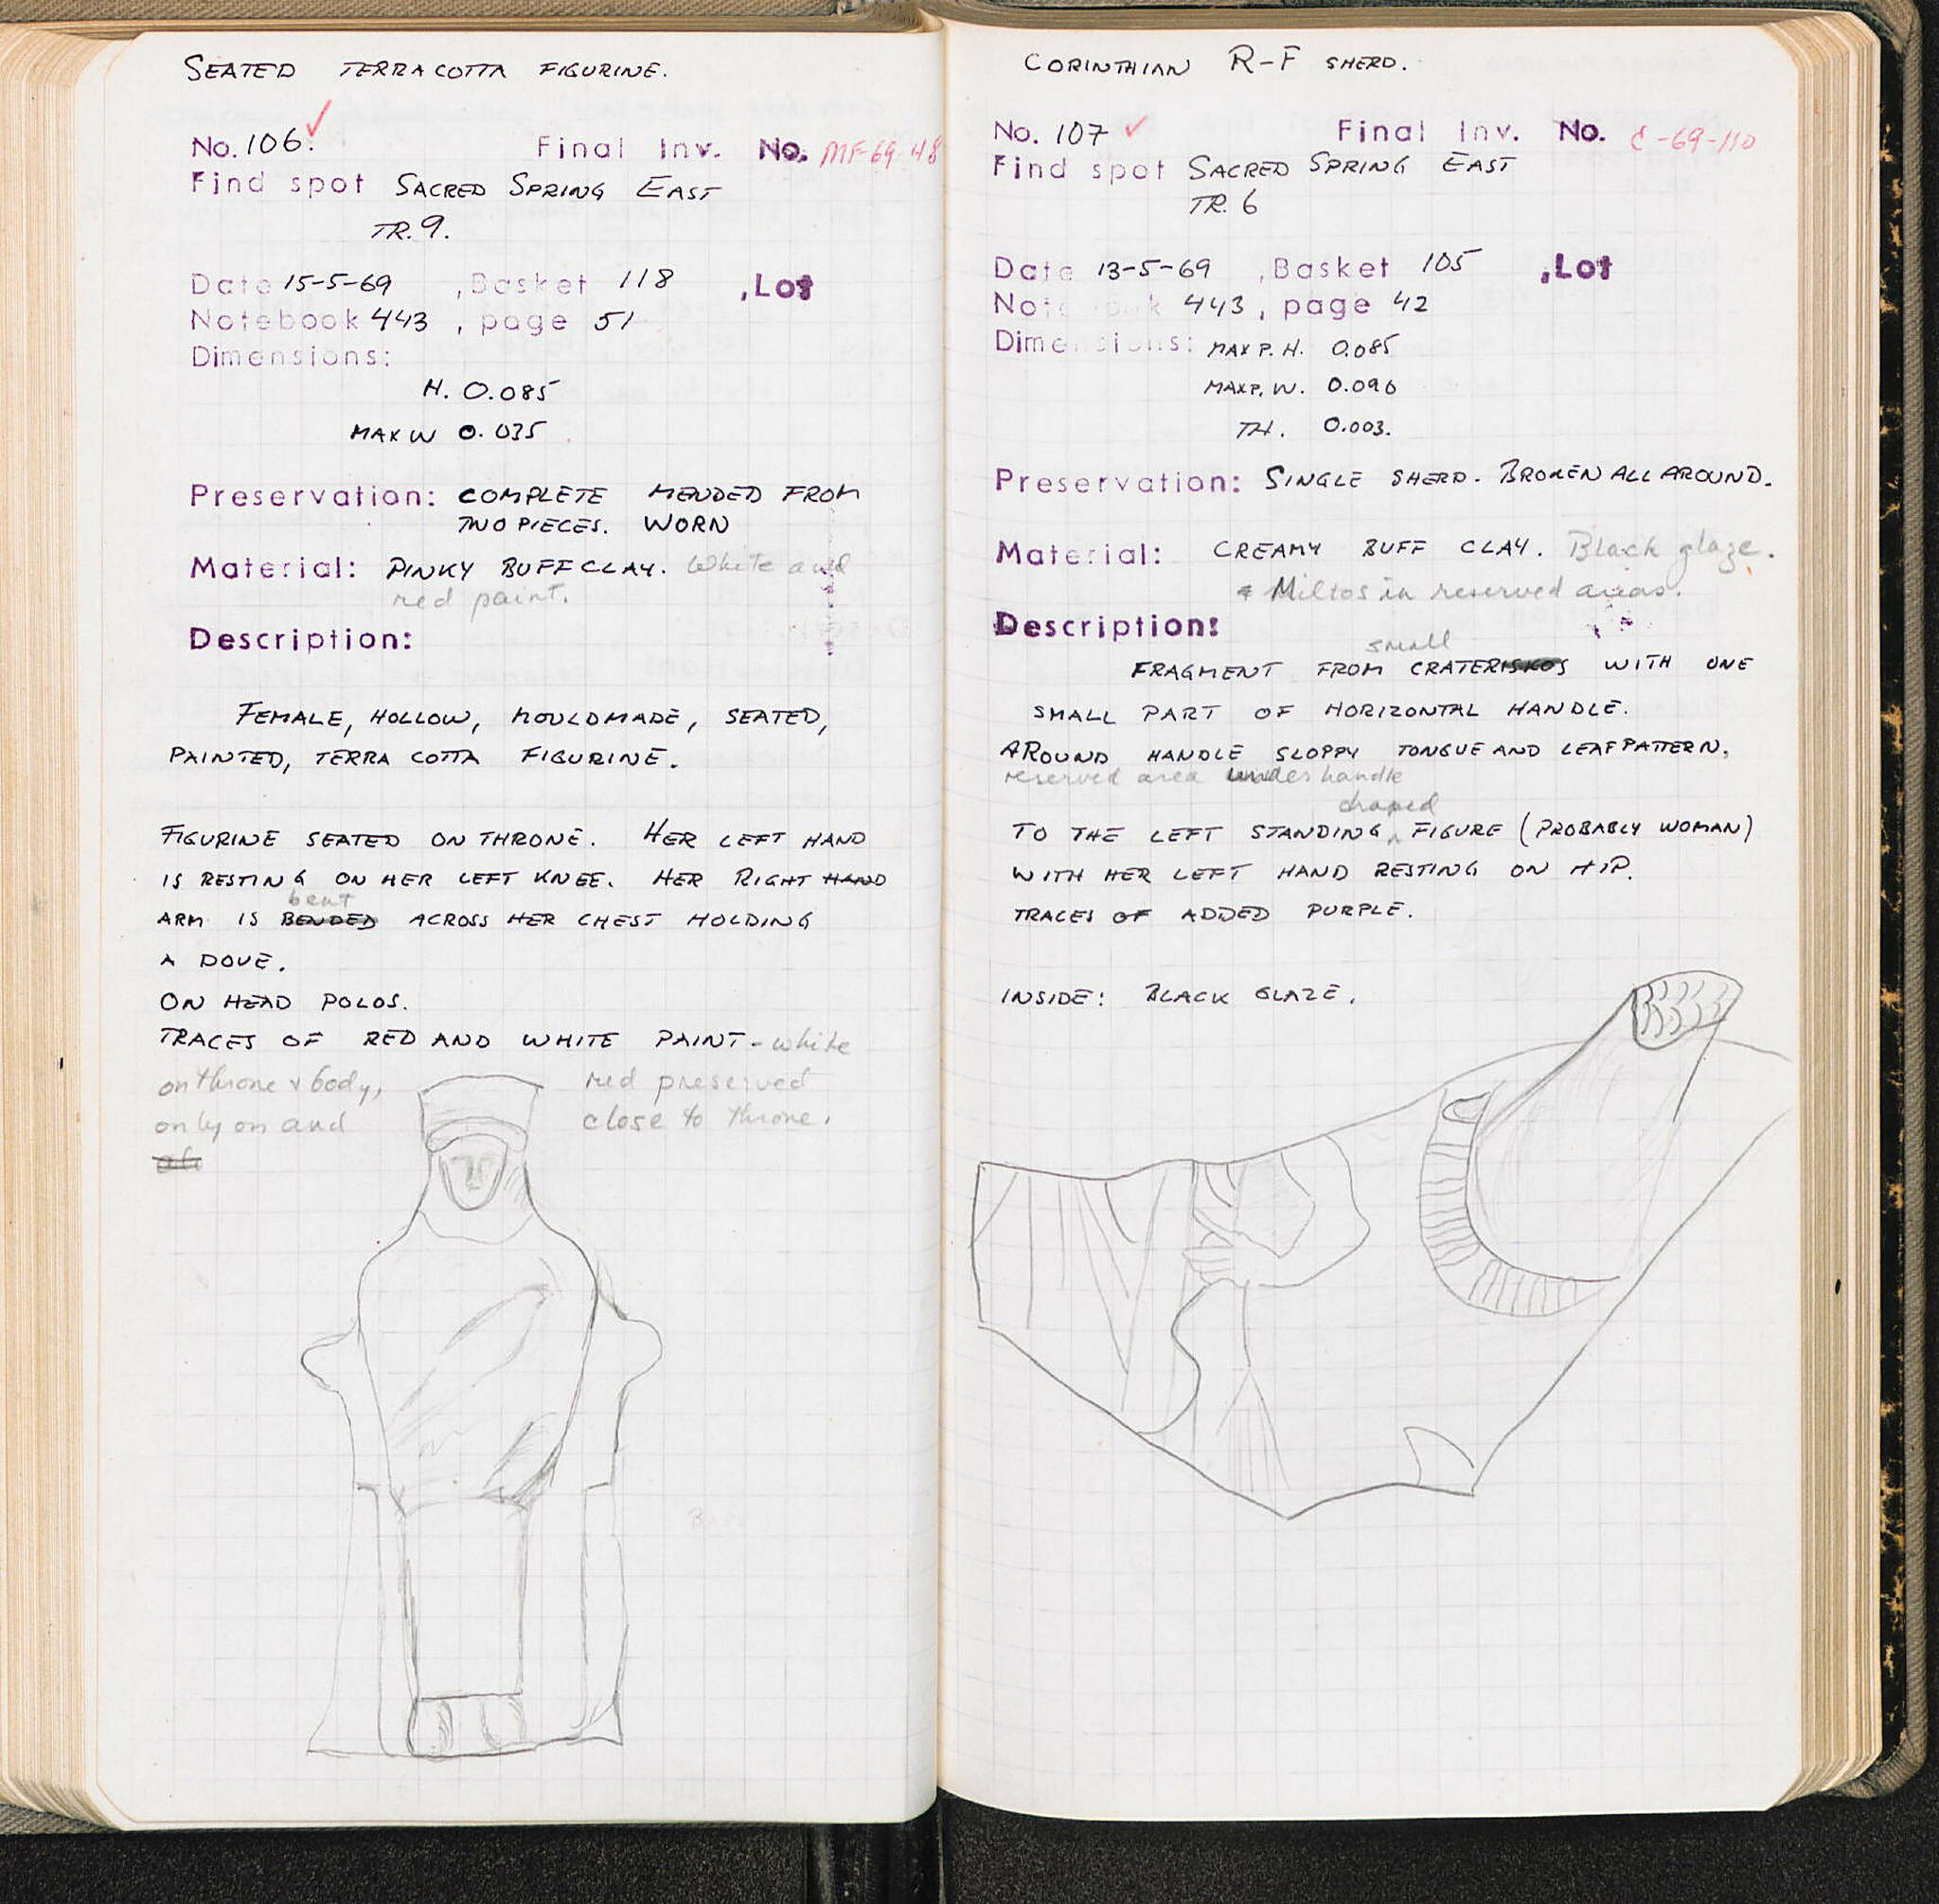 SEATED TERRACOTTA FIGURINE.
No. 106. ✓ Final Inv. No. MF-69-48
Find spot SACRED SPRING EAST
TR. 9.
Date 15-5-69 , Basket 118 , Lot
Notebook 443 , page 51
Dimensions:
H. 0.085
MAX W 0.035
Preservation: COMPLETE MENDED FROM
TWO PIECES. WORN
Material: PINKY BUFF CLAY. White and
red paint.
Description:
FEMALE, HOLLOW, MOULDMADE, SEATED,
PAINTED, TERRA COTTA FIGURINE.
FIGURINE SEATED ON THRONE. HER LEFT HAND
IS RESTING ON HER LEFT KNEE. HER RIGHT HAND
bent
ARM IS BENDED ACROSS HER CHEST HOLDING
A DOVE.
ON HEAD POLOS.
TRACES OF RED AND WHITE PAINT - white
on throne & body, red preserved
only on and close to throne.
CORINTHIAN R-F SHERD.
No. 107 ✓ Final Inv. No. C-69-110
Find spot SACRED SPRING EAST
TR. 6
Date 13-5-69 , Basket 105 , Lot
Notebook 443 , page 42
Dimensions: MAX P. H. 0.085
MAX P. W. 0.090
TH. 0.003.
Preservation: SINGLE SHERD. BROKEN ALL AROUND.
Material: CREAMY BUFF CLAY. Black glaze.
& Miltos in reserved areas.
Description:
small
FRAGMENT FROM CRATERISKOS WITH ONE
SMALL PART OF HORIZONTAL HANDLE.
AROUND HANDLE SLOPPY TONGUE AND LEAF PATTERN.
reserved area under handle
draped
TO THE LEFT STANDING FIGURE (PROBABLY WOMAN)
WITH HER LEFT HAND RESTING ON HIP.
TRACES OF ADDED PURPLE.
INSIDE: BLACK GLAZE.